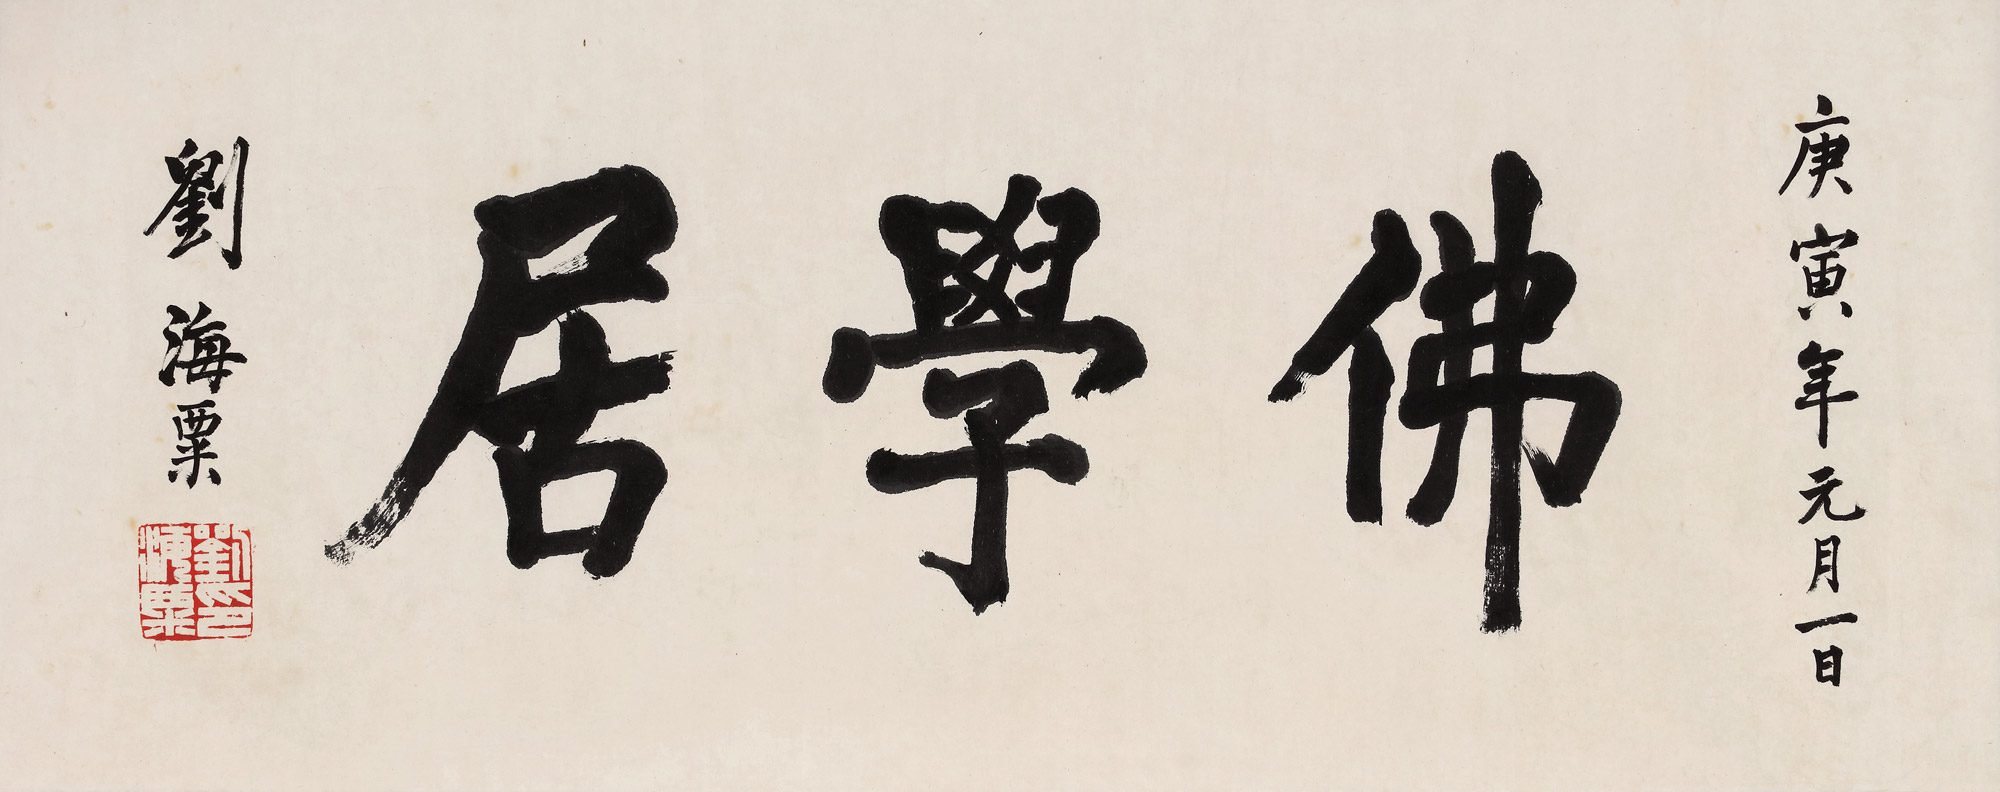 庚寅年元月一日
佛學居
劉海粟
劉海粟印